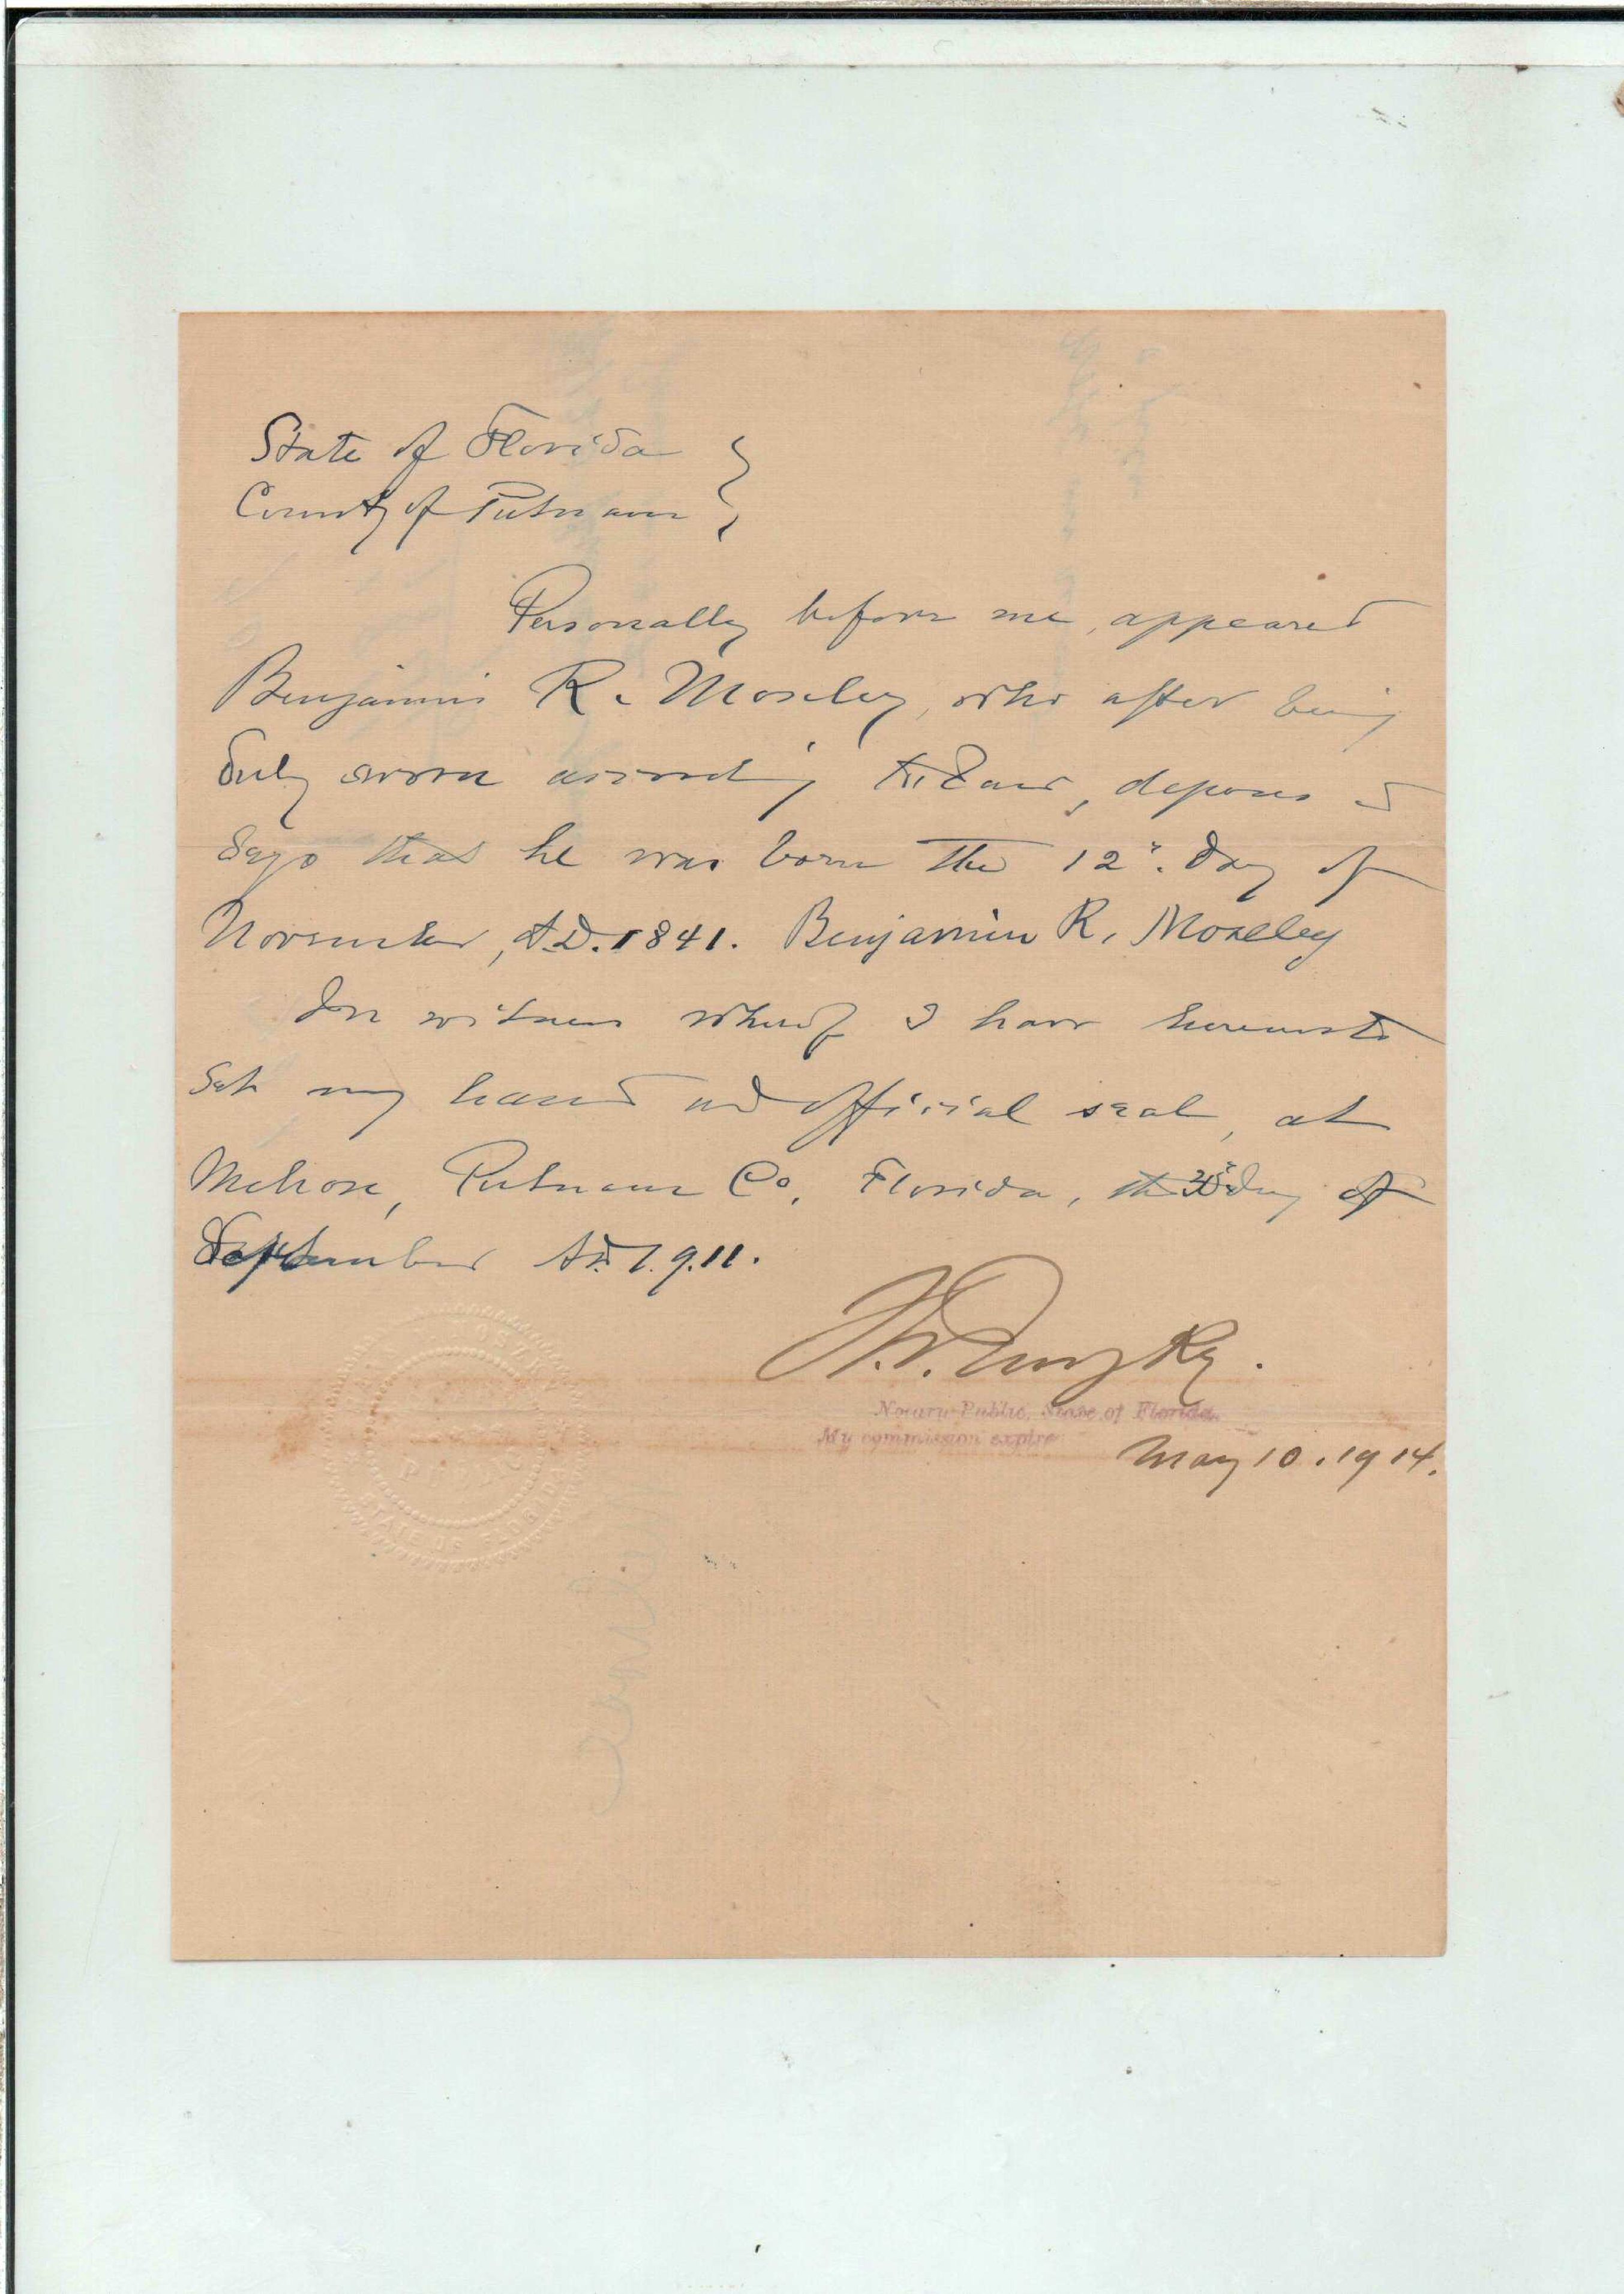 State of Florida }
County of Putnam }
Personally before me, appeared
Benjamin R. Moseley, who after being
duly sworn according to Law, deposes &
says that he was born the 12". day of
November, A.D. 1841. Benjamin R. Moseley
In witness whereof I have hereunto
set my hand and official seal, at
Melrose, Putnam Co, Florida, the day of
September A.D. 1.9.11.
Notary Public, State of Florida.
My commission expires
May 10. 1914.
STATE OF FLORIDA